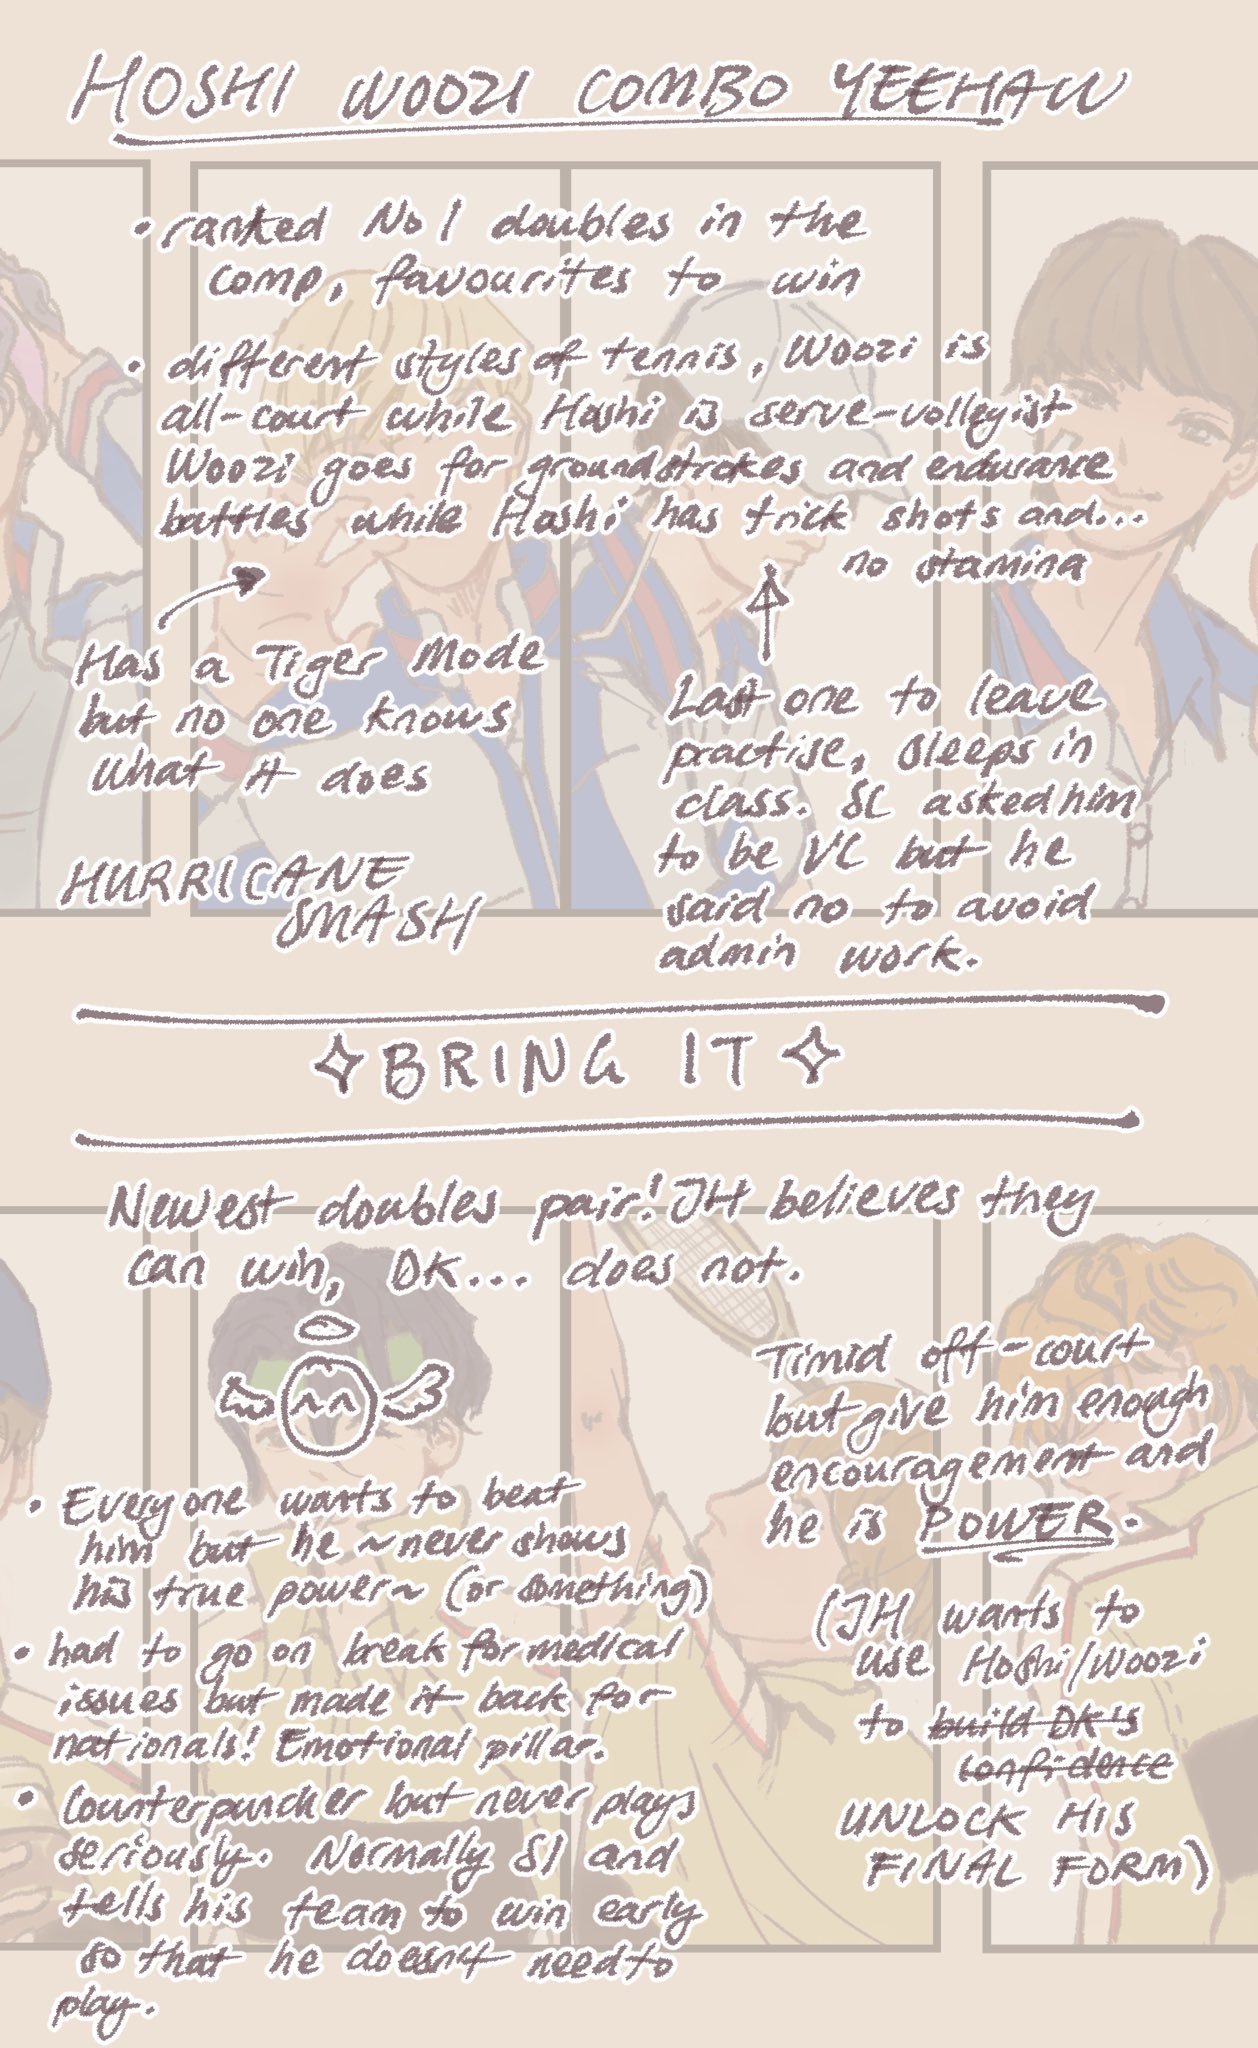 HOSHI WOOZI COMBO YEEHAW
• ranked No 1 doubles in the
comp, favourites to win
• different styles of tennis, Woozi is
all-court while Hoshi is serve-volleyist
Woozi goes for groundstrokes and endurance
battles while Hoshi has trick shots and...
no stamina
Has a Tiger Mode
but no one knows
what it does
HURRICANE
SMASH
Last one to leave
practise, sleeps in
class. SC asked him
to be VC but he
said no to avoid
admin work.
BRING IT
Newest doubles pair! JH believes they
can win, DK... does not.
• Everyone wants to beat
him but he ~never shows
his true power~ (or something)
• had to go on break for medical
issues but made it back for
nationals! Emotional pillar.
• Counterpuncher but never plays
seriously. Normally S1 and
tells his team to win early
so that he doesn't need to
play.
Timid off-court
but give him enough
encouragement and
he is POWER.
(JH wants to
use Hoshi/Woozi
to build DK's
confidence
UNLOCK HIS
FINAL FORM)